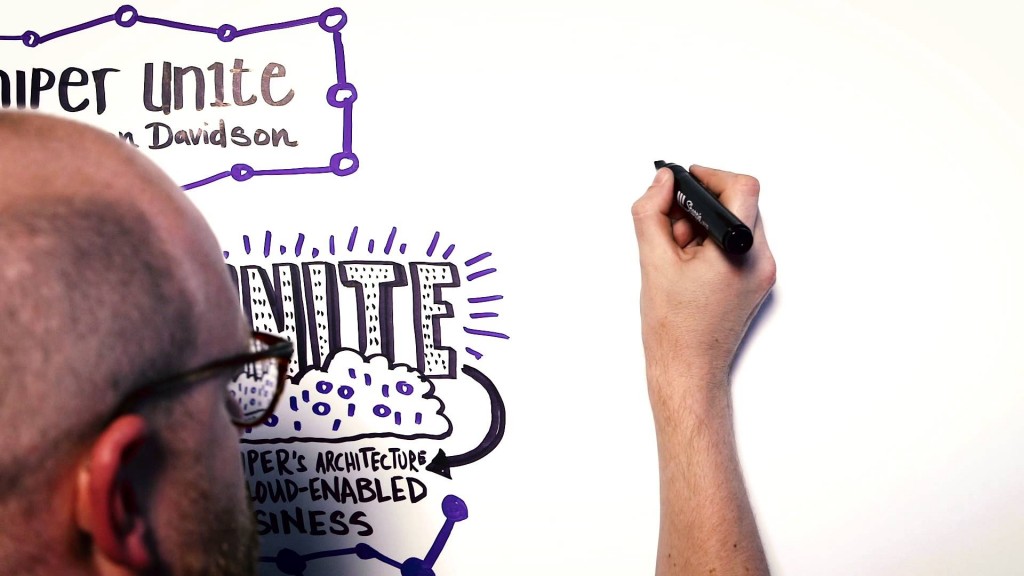 niper Un1te
n Davidson
UNITE
IPER'S ARCHITECTURE
LOUD-ENABLED
SINESS